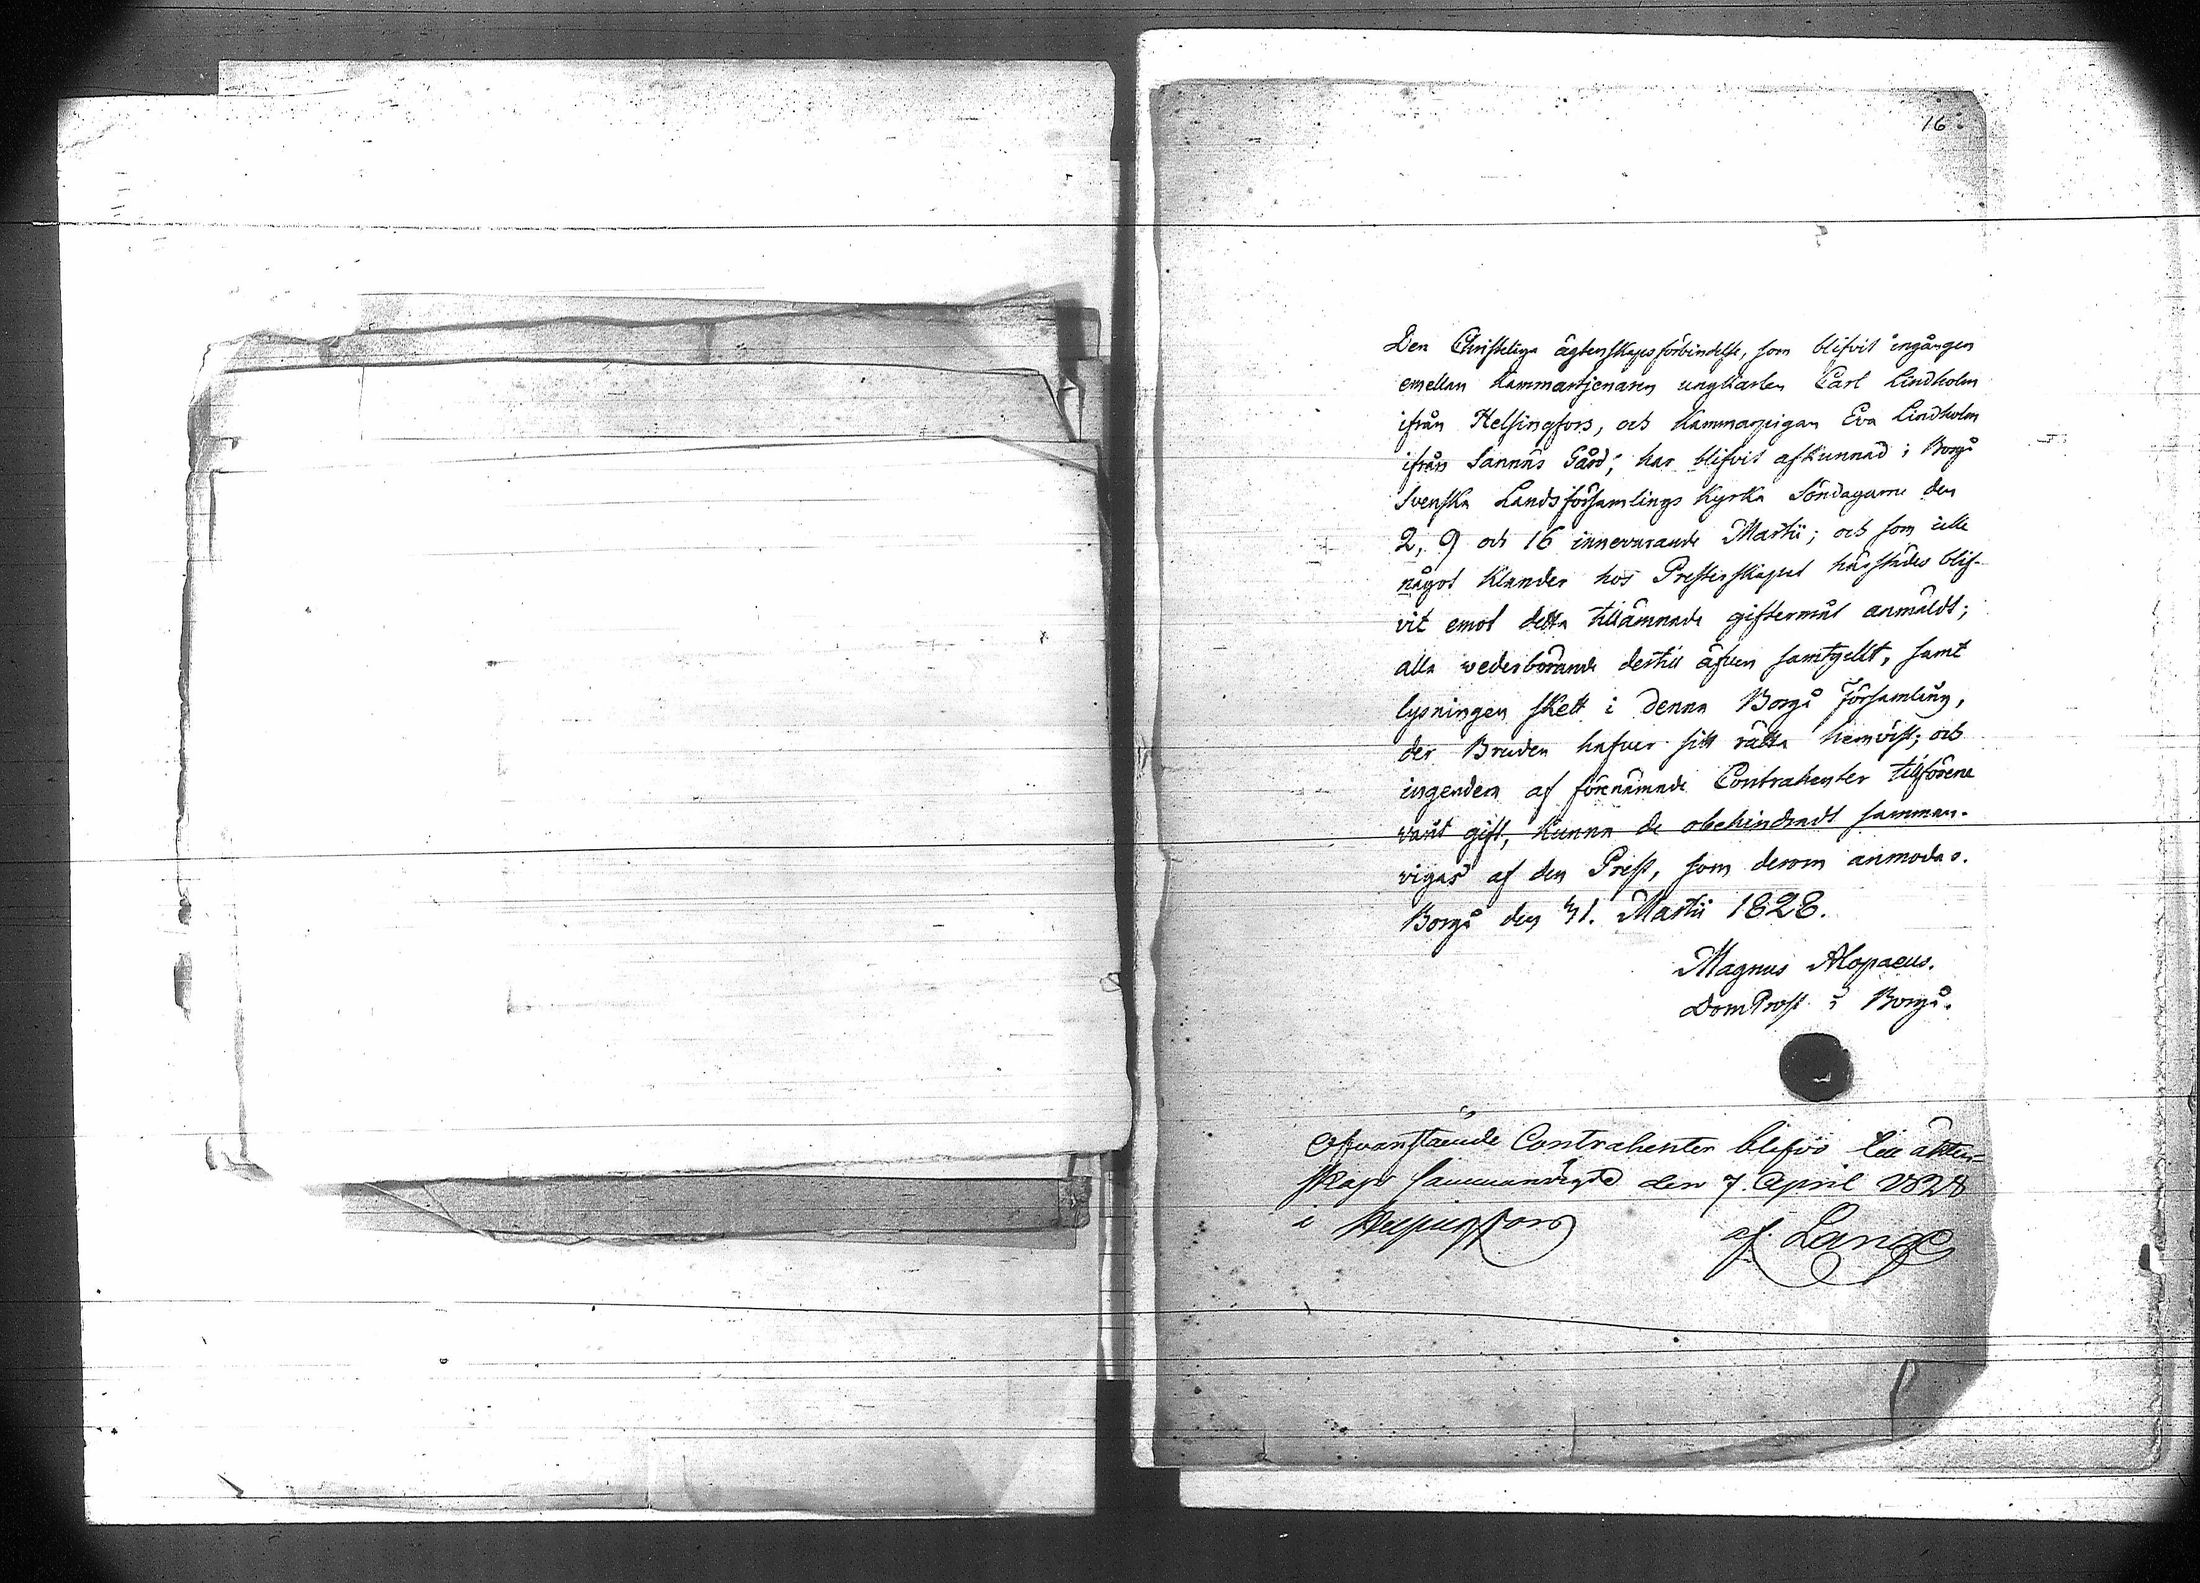 16
Den Christeliga ägtenskapsförbindelse, som blifvit ingången
emellan Kammartjenaren ungkarlen Carl Lindholm
ifrån Helsingfors, och Kammarpigan Eva Lindholm
ifrån Sannäs Gård; har blifvit afkunnad i Borgå
Svenska Landsförsamlings Kyrka Söndagarne den
2, 9 och 16 innevarande Martii; och som icke
något klander hos Presterskapet härstädes blif-
vit emot detta tillämnade giftermål anmäldt;
alla wederbörande dertill äfven samtyckt, samt
lysningen skett i denna Borgå Församling,
der Bruden hafver sitt rätta hemvist; och
ingendera af förenämnde Contrahenter tillförene
varit gift, kunna de obehindradt samman-
vigas af den Prest, som derom anmodas.
Borgå den 31. Martii 1828.
Magnus Alopaeus.
DomProst i Borgå.
Ofvanstående Contrahenter blefvo till äkten-
skap sammanvigde den 7. April 1828
i Helsingfors
af. Lange